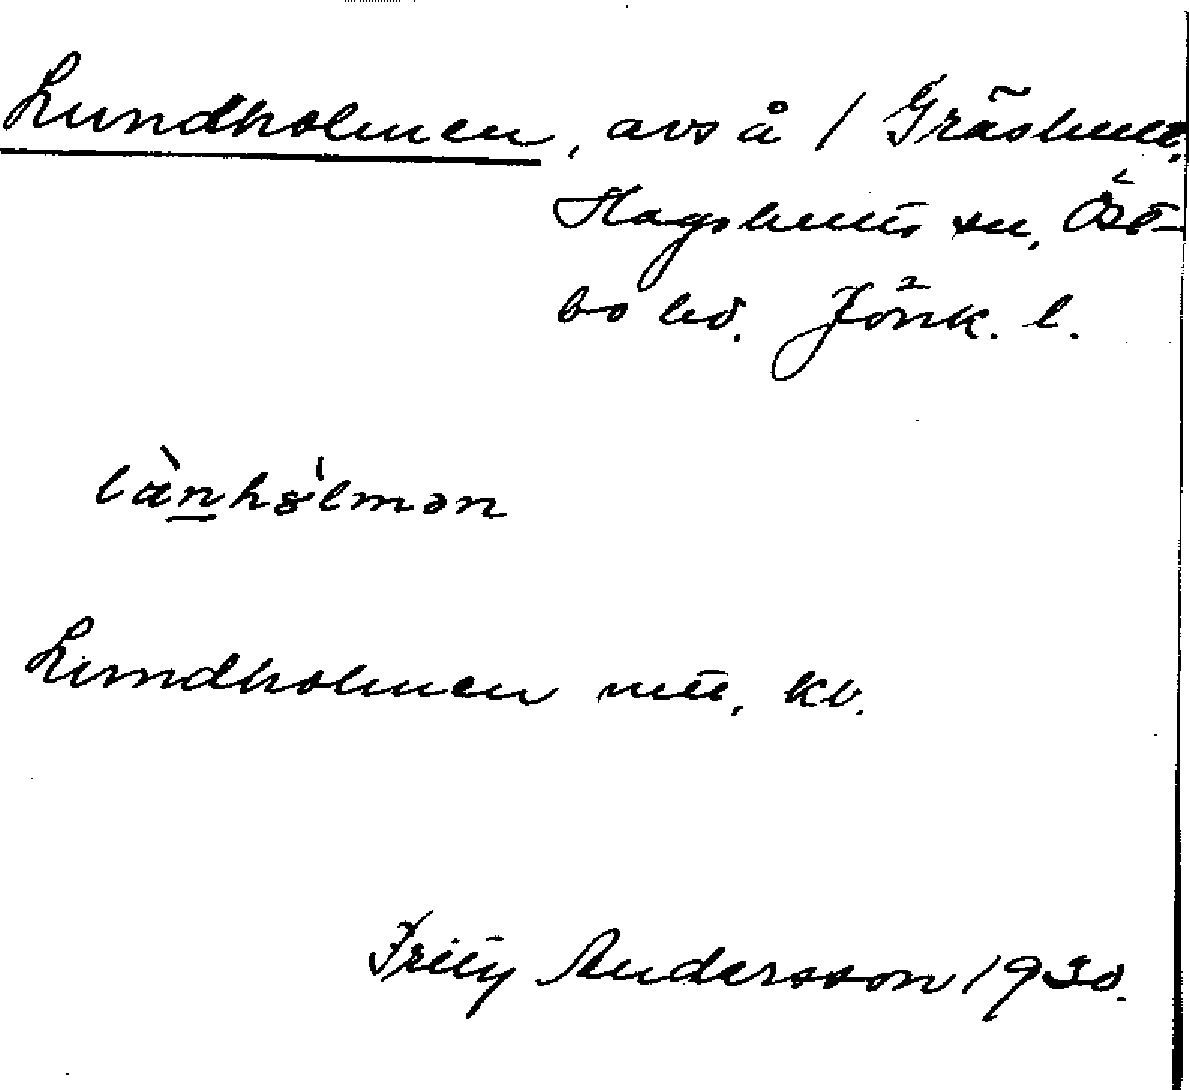 Lundholmen, avs å 1 Gräshult,
Hagshults sn, Öst-
bo hd. Jönk. l.
lànhólmən
Lundholmen mtl, kb.
Fritz Andersson 1930.